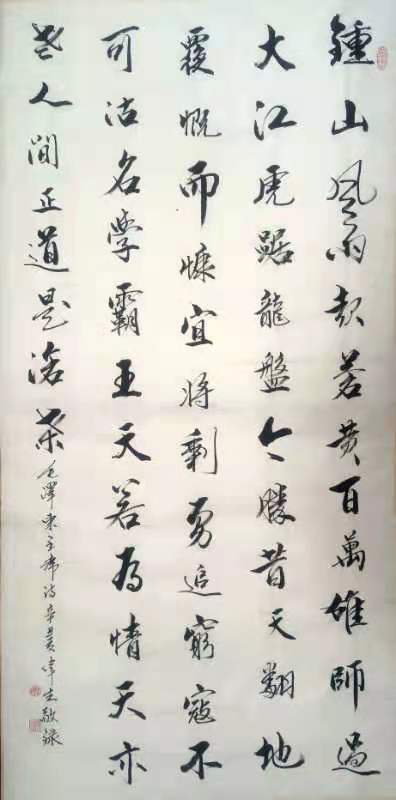 鍾山風雨起蒼黃百萬雄師過
大江虎踞龍盤今勝昔天翻地
覆慨而慷宜將剩勇追窮寇不
可沽名學霸王天若有情天亦
老人間正道是滄桑
毛澤東主席詩辛丑敬録